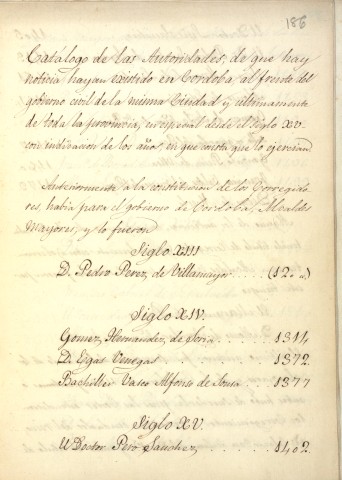 186
Catálogo de las Autoridades, de que hay
noticia hayan existido en Cordoba al frente del
gobierno civil de la misma Ciudad y últimamente
de toda la provincia, en especial desde el Siglo XV
con indicacion de los años, en que consta que lo ejercian
Anteriormente a la constitucion de los Corregido
res, habia para el gobierno de Cordoba, Alcaldes
Mayores, y lo fueron
Siglo XIII
D. Pedro Perez, de Villamayor . . . (12..)
Siglo XIV.
Gomez Hernandez, de Soria . . . . 1314
D. Egas Venegas . . . . . . . 1372.
Bachiller Vasco Alfonso de Sousa . . . 1377
Siglo XV.
El Doctor Pero Sanchez . . . . . . 1402.